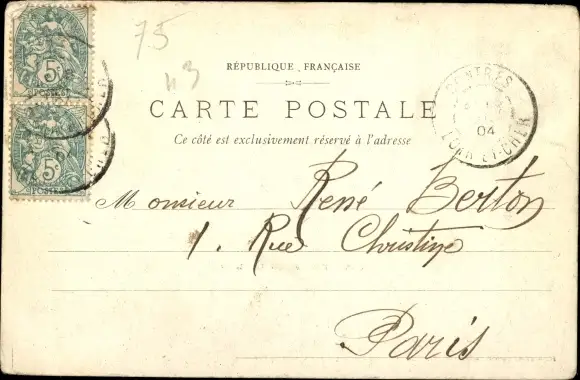 75
43
5c
POSTES
5c
POSTES
RÉPUBLIQUE FRANÇAISE
CARTE POSTALE
Ce côté est exclusivement réservé à l'adresse
CONTRES
04
LOIR-ET-CHER
Monsieur René Berton
1. Rue Christine
Paris